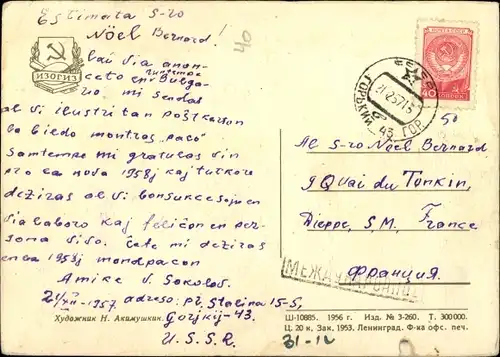 Estimata S-ro
Nöel Bernard!
40
laŭ via anon-
ceto en
mi sendas
al vi ilustritan poŝtkarton
la bildo montras "paco"
Samtempe mi gratulas vin
pro la nova 1958j kaj tutkore
deziras al vi bonsukcesojn en
via laboro kaj feliĉon en per-
sona vivo. Ĉefe mi deziras
en la 1958j mondpacon
Amike V. Sokolov
21/XII-1957. adreso: pr. Stalina 15-5,
Gorjkij-43.
U.S.S.R.
ИЗОГИЗ
Художник Н. Акимушкин.
ПОЧТА СССР
40
ГОРЬКИЙ 43 ГОР.
50
Al s-ro Nöel Bernard
9 Quai du Tonkin,
Dieppe, S.M. France
Франция.
МЕЖДУНАРОДНОЕ
Ш-10885. 1956 г. Изд. № 3-260. Т. 300 000.
Ц. 20 к, Зак, 1953. Ленинград. Ф-ка офс. печ.
31-12